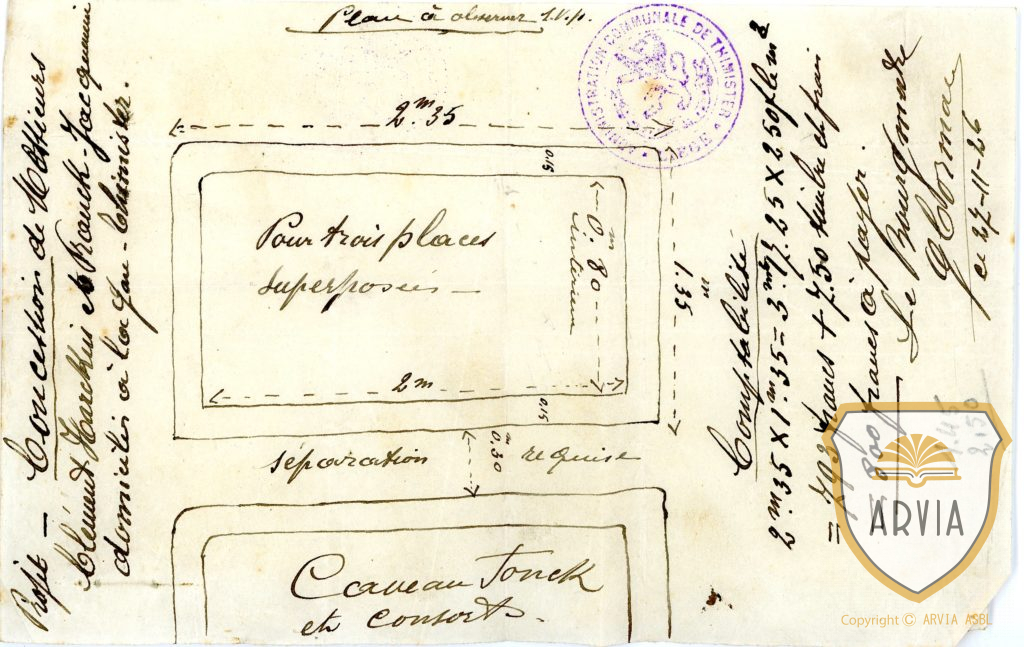 Plan à observer S.V.p.
ADMINISTRATION COMMUNALE DE THIMISTER
LIEGE
Projet — Concession de Messieurs
Clément Harckin et Franck-Jacquemin
domiciliés à la Gare-Thimister.
2.m35
0.15
Pour trois places
superposées —
0.m80
intérieure
2m
0.15
1.m35
séparation requise
0.m30
Caveau Jonck
et consorts.
Comptabilité
2.m35 X 1.m35 = 3.m217.25 X 250 f le m2
= 793 francs + 7.50 timbre de frais
= 800 francs à payer.
Le Bourgmestre
ce 27-11-26
2150
ARVIA
Copyright © ARVIA ASBL